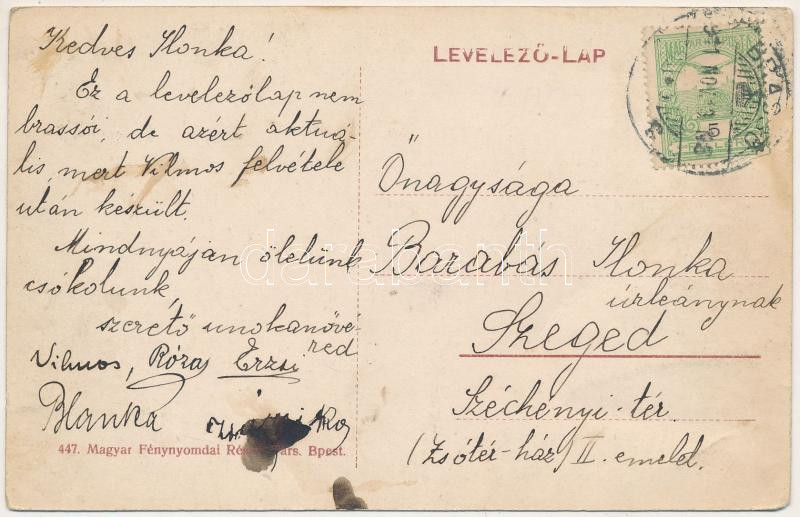 Kedves Ilonka!
Ez a levelezőlap nem
brassói, de azért aktuá-
lis, mert Vilmos felvétele
után készült.
Mindnyájan ölelünk
csókolunk,
szerető unokanővé-
red
Vilmos, Rózsa Erzsi
Blanka
447. Magyar Fénynyomdai Bpest.
LEVELEZŐ-LAP
Őnagysága
Barabás Ilonka
úrleánynak
Szeged
Széchenyi-tér.
(Zsótér-ház) II. emelet.
darabanth